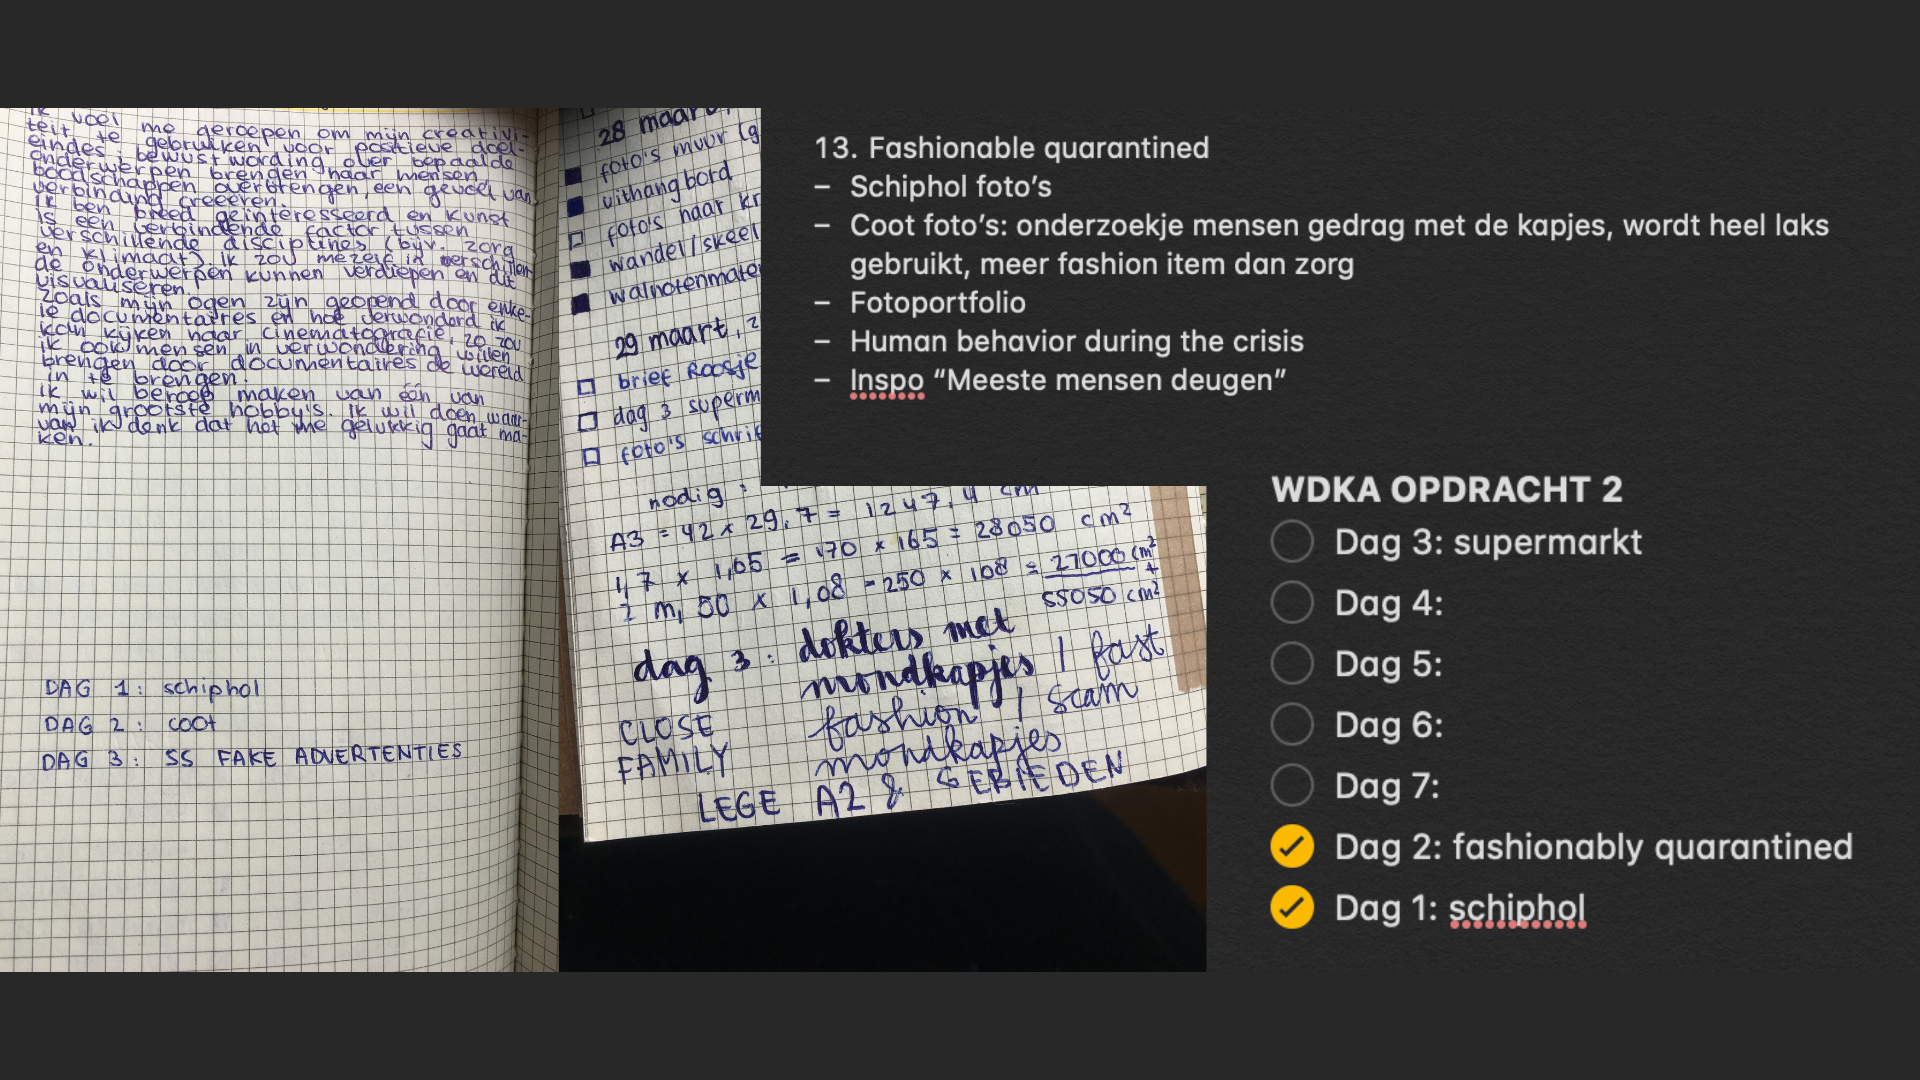 ik voel me geroepen om mijn creativi-
teit te gebruiken voor positieve doel-
eindes: bewustwording over bepaalde
onderwerpen brengen naar mensen,
boodschappen overbrengen, een gevoel van
verbinding creëeren.
Ik ben breed geïnteresseerd en kunst
is een verbindende factor tussen
verschillende disciplines (bijv. zorg
en klimaat). Ik zou mezelf in verschillen-
de onderwerpen kunnen verdiepen en dit
visualiseren.
Zoals mijn ogen zijn geopend door enke-
le documentaires en hoe verwonderd ik
kan kijken naar cinematografie, zo zou
ik ook mensen in verwondering willen
brengen door documentaires de wereld
in te brengen.
Ik wil beroep maken van één van
mijn grootste hobby's. Ik wil doen waar-
van ik denk dat het me gelukkig gaat ma-
ken.
DAG 1: schiphol
DAG 2: coot
DAG 3: SS FAKE ADVERTENTIES
28 maart,
foto's muur (g
uithangbord
foto's naar kr
wandel/skeel
walnotenmate
29 maart, 2
brief Roosje
dag 3 superm
foto's schrif
nodig:
A3 = 42 x 29,7 = 1247,4 cm
1,7 x 1,65 = 170 x 165 = 28050 cm²
2 m, 50 x 1,08 = 250 x 108 = 27000 cm²
+
55050 cm²
dag 3: dokters met
mondkapjes | fast
CLOSE fashion | scam
FAMILY mondkapjes
LEGE A2 & GEBIEDEN
13. Fashionable quarantined
– Schiphol foto’s
– Coot foto’s: onderzoekje mensen gedrag met de kapjes, wordt heel laks
gebruikt, meer fashion item dan zorg
– Fotoportfolio
– Human behavior during the crisis
– Inspo “Meeste mensen deugen”
WDKA OPDRACHT 2
Dag 3: supermarkt
Dag 4:
Dag 5:
Dag 6:
Dag 7:
Dag 2: fashionably quarantined
Dag 1: schiphol